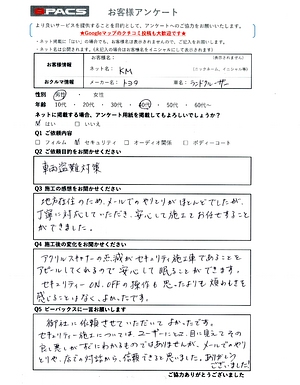 PACS お客様アンケート
より良いサービスを提供することを目的として、アンケートへのご協力をお願いいたします。
★Googleマップのクチコミ投稿も大歓迎です★
お客様情報
お客様名：
ネット名： KM
おクルマ情報
メーカー名： トヨタ
車名： ランドクルーザー
性別 男性 ・ 女性
年齢 10代 ・ 20代 ・ 30代 ・ 40代 ・ 50代 ・ 60代～
ネットに掲載する場合、アンケート用紙を掲載してもよろしいでしょうか？
はい □ いいえ
Q1 ご依頼内容
□ フィルム セキュリティ □ オーディオ関係 □ ボディーコート
Q2 ご依頼目的をお聞かせください
車両盗難対策
Q3 施工の感想をお聞かせください
地方在住のため、メールでのやりとりがほとんどでしたが、
丁寧に対応していただき、安心して施工をお任せすること
ができました。
Q4 施工後の変化をお聞かせください
アクリルスキャナーの点滅がセキュリティ施工車であることを
アピールしてくれるので安心して眠ることができます。
セキュリティーON、OFFの操作も思ったよりも煩わしさを
感じることはなく、よかったです。
Q5 ピーパックスに一言お願いします
御社に依頼させていただいてよかったです。
セキュリティー施工については、ユーザーにとって、目に見えてその
良し悪しが一概にわかるものではありませんが、メールでのやり
とりや、店での対話から、信頼できると思いました。ありがとう
ございました！
ご協力ありがとうございました